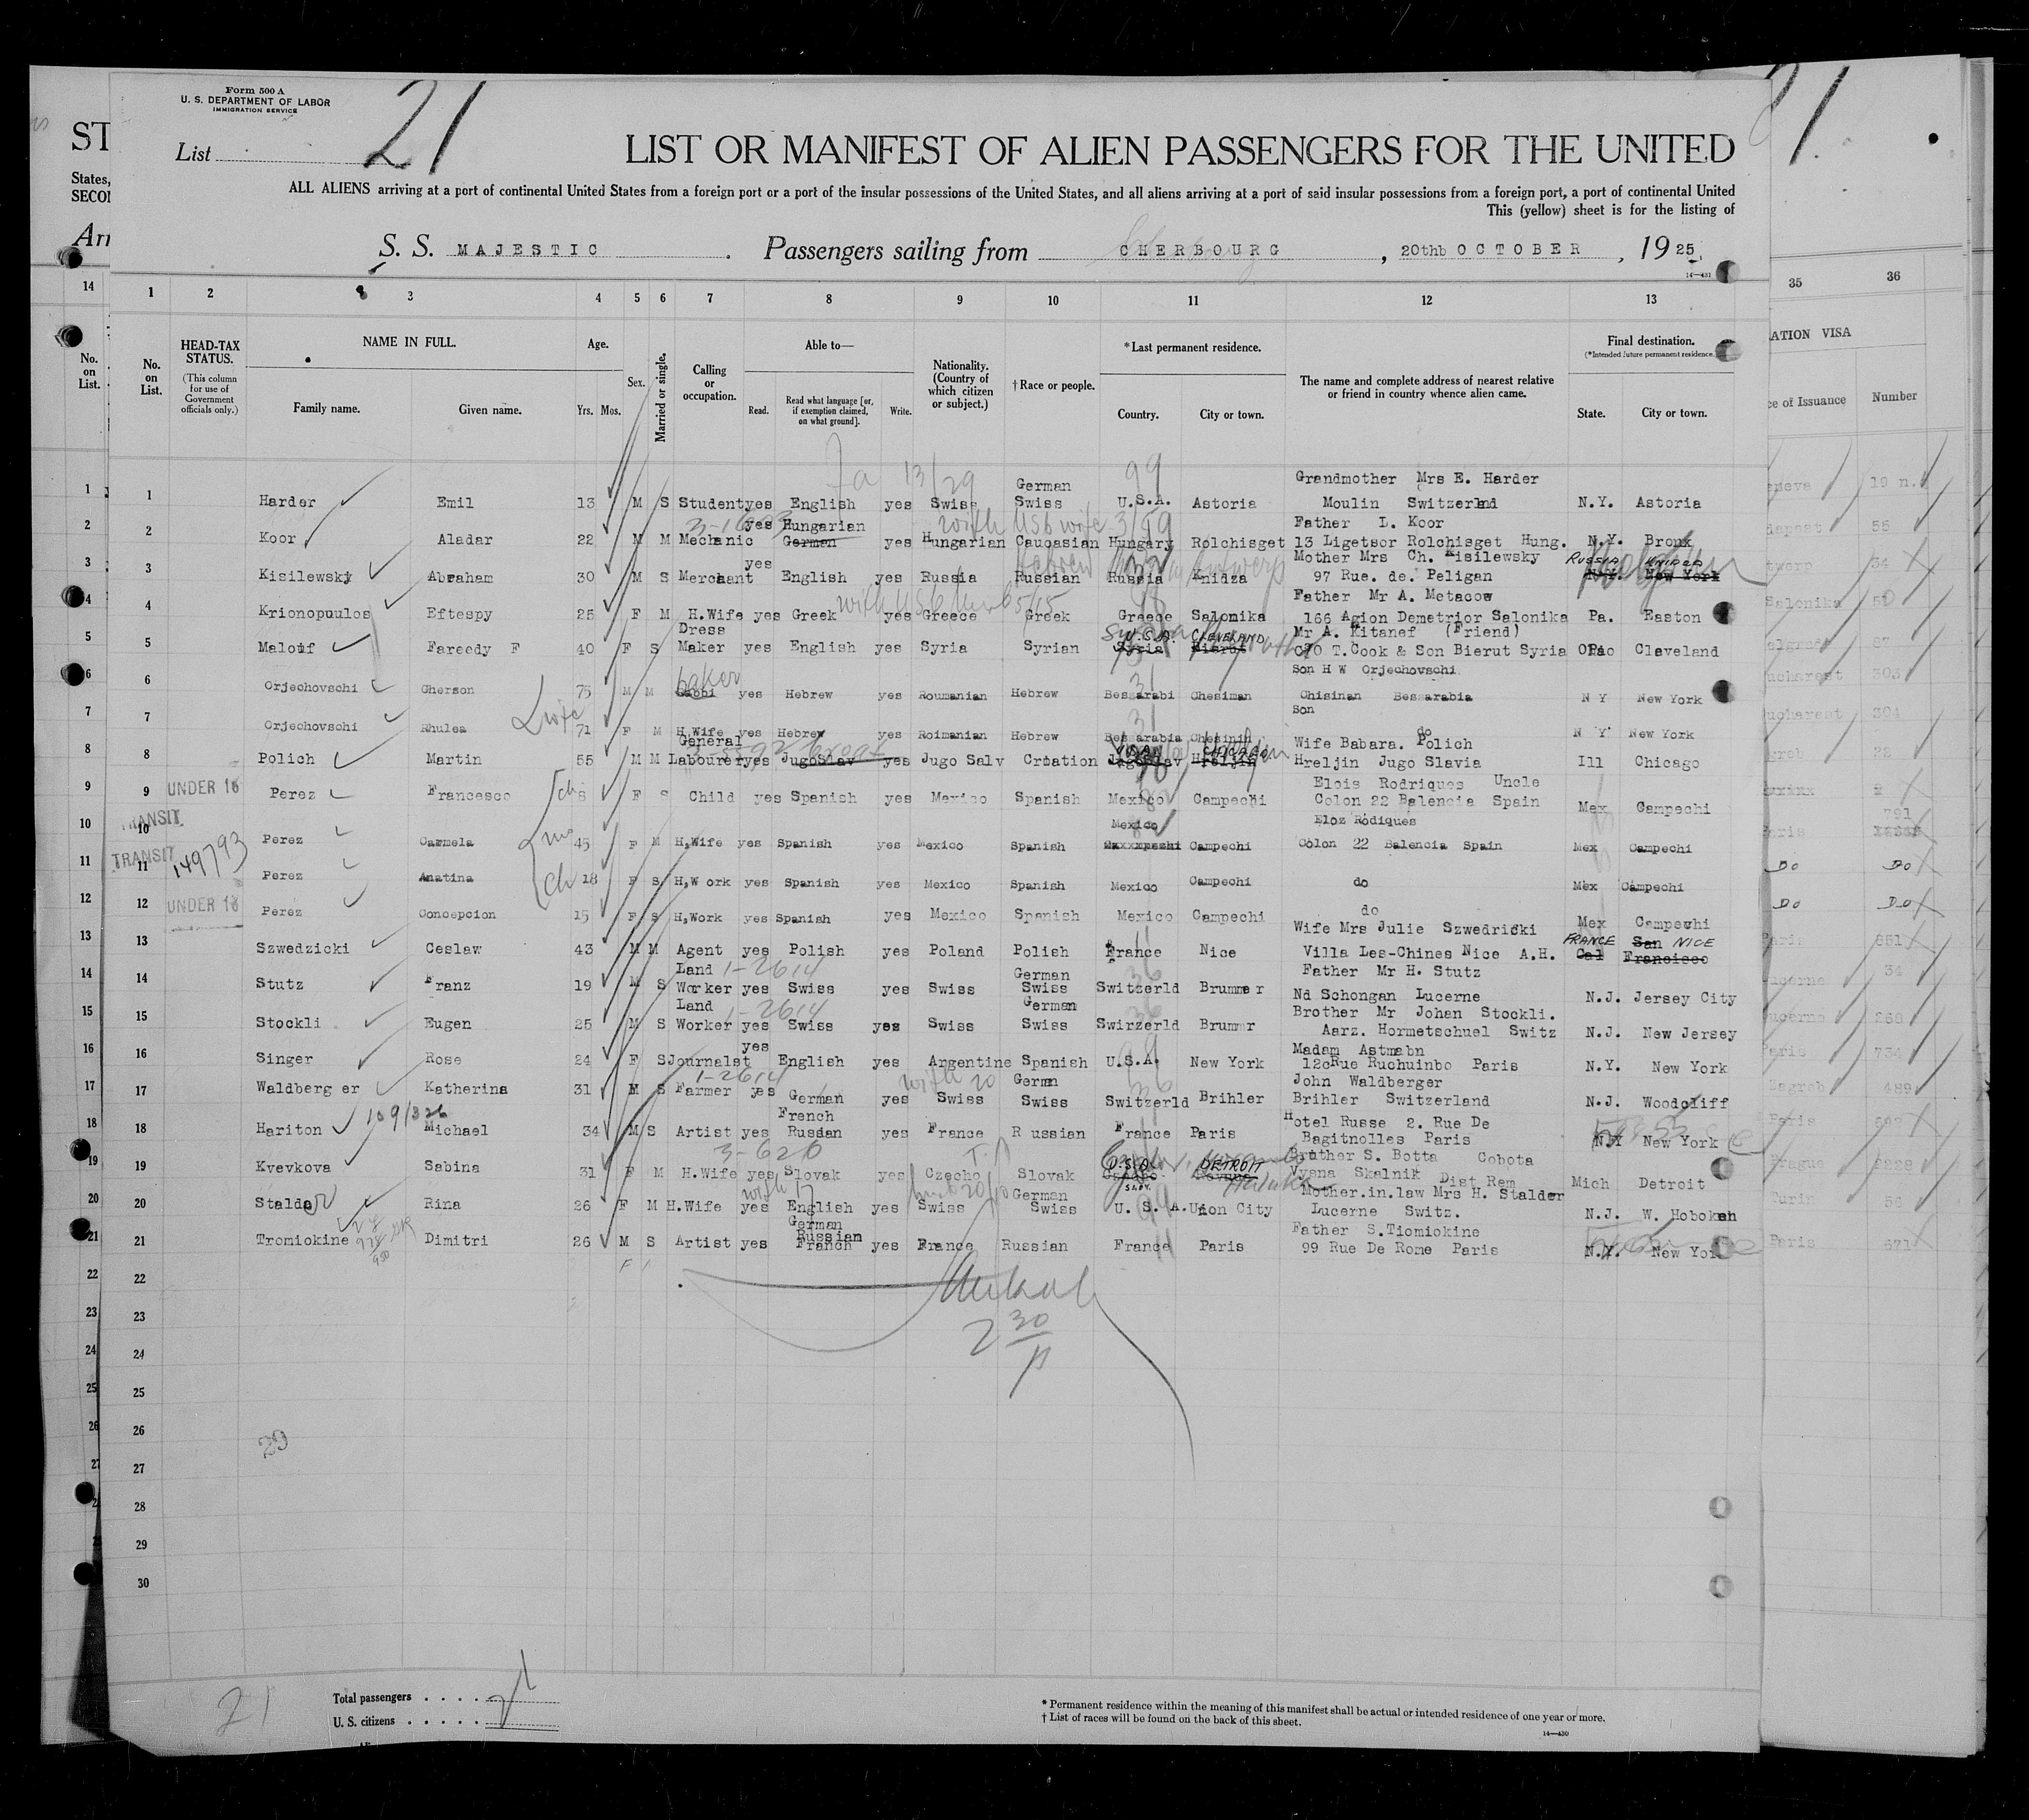 Form 500 A
U. S. DEPARTMENT OF LABOR
IMMIGRATION SERVICE
List 21
LIST OR MANIFEST OF ALIEN PASSENGERS FOR THE UNITED
ALL ALIENS arriving at a port of continental United States from a foreign port or a port of the insular possessions of the United States, and all aliens arriving at a port of said insular possessions from a foreign port, a port of continental United
This (yellow) sheet is for the listing of
S. S. MAJESTIC . Passengers sailing from CHERBOURG , 20thb OCTOBER , 1925
14—431
1 2 3 4 5 6 7 8 9 10 11 12 13
No. on List.
HEAD-TAX STATUS.
(This column for use of Government officials only.)
NAME IN FULL.
Family name. Given name.
Age.
Yrs. Mos.
Sex.
Married or single.
Calling or occupation.
Able to—
Read. Read what language [or, if exemption claimed, on what ground]. Write.
Nationality. (Country of which citizen or subject.)
† Race or people.
* Last permanent residence.
Country. City or town.
The name and complete address of nearest relative or friend in country whence alien came.
Final destination.
(*Intended future permanent residence.)
State. City or town.
1 Harder Emil 13 M S Student yes English yes Swiss German Swiss U.S.A. Astoria Grandmother Mrs E. Harder Moulin Switzerlnd N.Y. Astoria
2 Koor Aladar 22 M M Mechanic yes Hungarian German yes Hungarian Caucasian Hungary Rolchisget Father L. Koor 13 Ligetsor Rolchisget Hung. N.Y. Bronx
3 Kisilewsky Abraham 30 M S Merchant yes English yes Russia Russian Russia Knidza Mother Mrs Ch. Kisilewsky 97 Rue. de. Peligan RUSSIA KNIDZA N.Y. New York
4 Krionopuulos Eftespy 25 F M H.Wife yes Greek yes Greece Greek Greece Salonika Father Mr A. Metacow 166 Agion Demetrior Salonika Pa. Easton
5 Malouf Fareedy F 40 F S Dress Maker yes English yes Syria Syrian U.S.A. CLEVELAND Syria Bierut Mr A. Kitanef (Friend) C/O T.Cook & Son Bierut Syria Cleveland
6 Orjechovschi Gherson 75 M M baker yes Hebrew yes Roumanian Hebrew Bessarabi Chesiman Son H W Orjechovschi Chisinan Bessarabia N Y New York
7 Orjechovschi Rhulea wife 71 F M H.Wife yes Hebrew yes Roimanian Hebrew Bessarabia Chesinin Son do N Y New York
8 Polich Martin 55 M M General Labourer yes JugoSlav yes Jugo Salv Croation CHICAGO Jugoslav Hreljin Wife Babara. Polich Hreljin Jugo Slavia Ill Chicago
9 UNDER 16 Perez Francesco ch 8 F S Child yes Spanish yes Mexico Spanish Mexico Campechi Elois Rodriques Uncle Colon 22 Balencia Spain Mex Campechi
10 TRANSIT Perez Carmela 45 F M H,Wife yes Spanish yes Mexico Spanish Mexico Campechi Eloz Rodiques Colon 22 Balencia Spain Mex Campechi
11 TRANSIT 149793 Perez Anatina ch 18 F S H,W ork yes Spanish yes Mexico Spanish Mexico Campechi do Mex Campechi
12 UNDER 16 Perez Concepcion 15 F S H,Work yes Spanish yes Mexico Spanish Mexico Campechi do Mex Campechi
13 Szwedzicki Ceslaw 43 M M Agent yes Polish yes Poland Polish France Nice Wife Mrs Julie Szwedricki Villa Les-Chines Nice A.H. FRANCE NICE Cal San Francisco
14 Stutz Franz 19 M S Land Worker 1-2614 yes Swiss yes Swiss German Swiss Switzerld Brummer Father Mr H. Stutz Nd Schongan Lucerne N.J. Jersey City
15 Stockli Eugen 25 M S Land Worker 1-2614 yes Swiss yes Swiss German Swiss Swirzerld Brummr Brother Mr Johan Stockli. Aarz. Hormetschuel Switz N.J. New Jersey
16 Singer Rose 24 F S Journalst yes English yes Argentine Spanish U.S.A. New York Madam Astmabn 12cRue Ruchuinbo Paris N.Y. New York
17 Waldberg er Katherina 31 M S Farmer 1-2614 yes German yes Swiss Germn Swiss Switzerld Brihler John Waldberger Brihler Switzerland N.J. Woodcliff
18 Hariton Michael 34 M S Artist yes French Russian yes France R ussian France Paris Hotel Russe 2. Rue De Bagitnolles Paris N.Y New York
19 Kvevkova Sabina 31 F M H.Wife 3-6210 yes Slovak yes Czecho Slovak U.S.A. DETROIT Brother S. Botta Cobota Vysna Skalnik Dist Rem Mich Detroit
20 Stalder Rina 26 F M H.Wife yes English German yes Swiss German Swiss U. S. A. Union City Mother.in.law Mrs H. Stalder Lucerne Switz. N.J. W. Hoboken
21 Tromiokine Dimitri 26 M S Artist yes Russian Franch yes France Russian France Paris Father S.Tiomiokine 99 Rue De Rome Paris N.Y. New York
22
23
24
25
26
27
28
29
30
2 30
29
21
Total passengers . . . . 21
U. S. citizens . . . . .
* Permanent residence within the meaning of this manifest shall be actual or intended residence of one year or more.
† List of races will be found on the back of this sheet.
14—430
35 36
ATION VISA
ce of Issuance Number